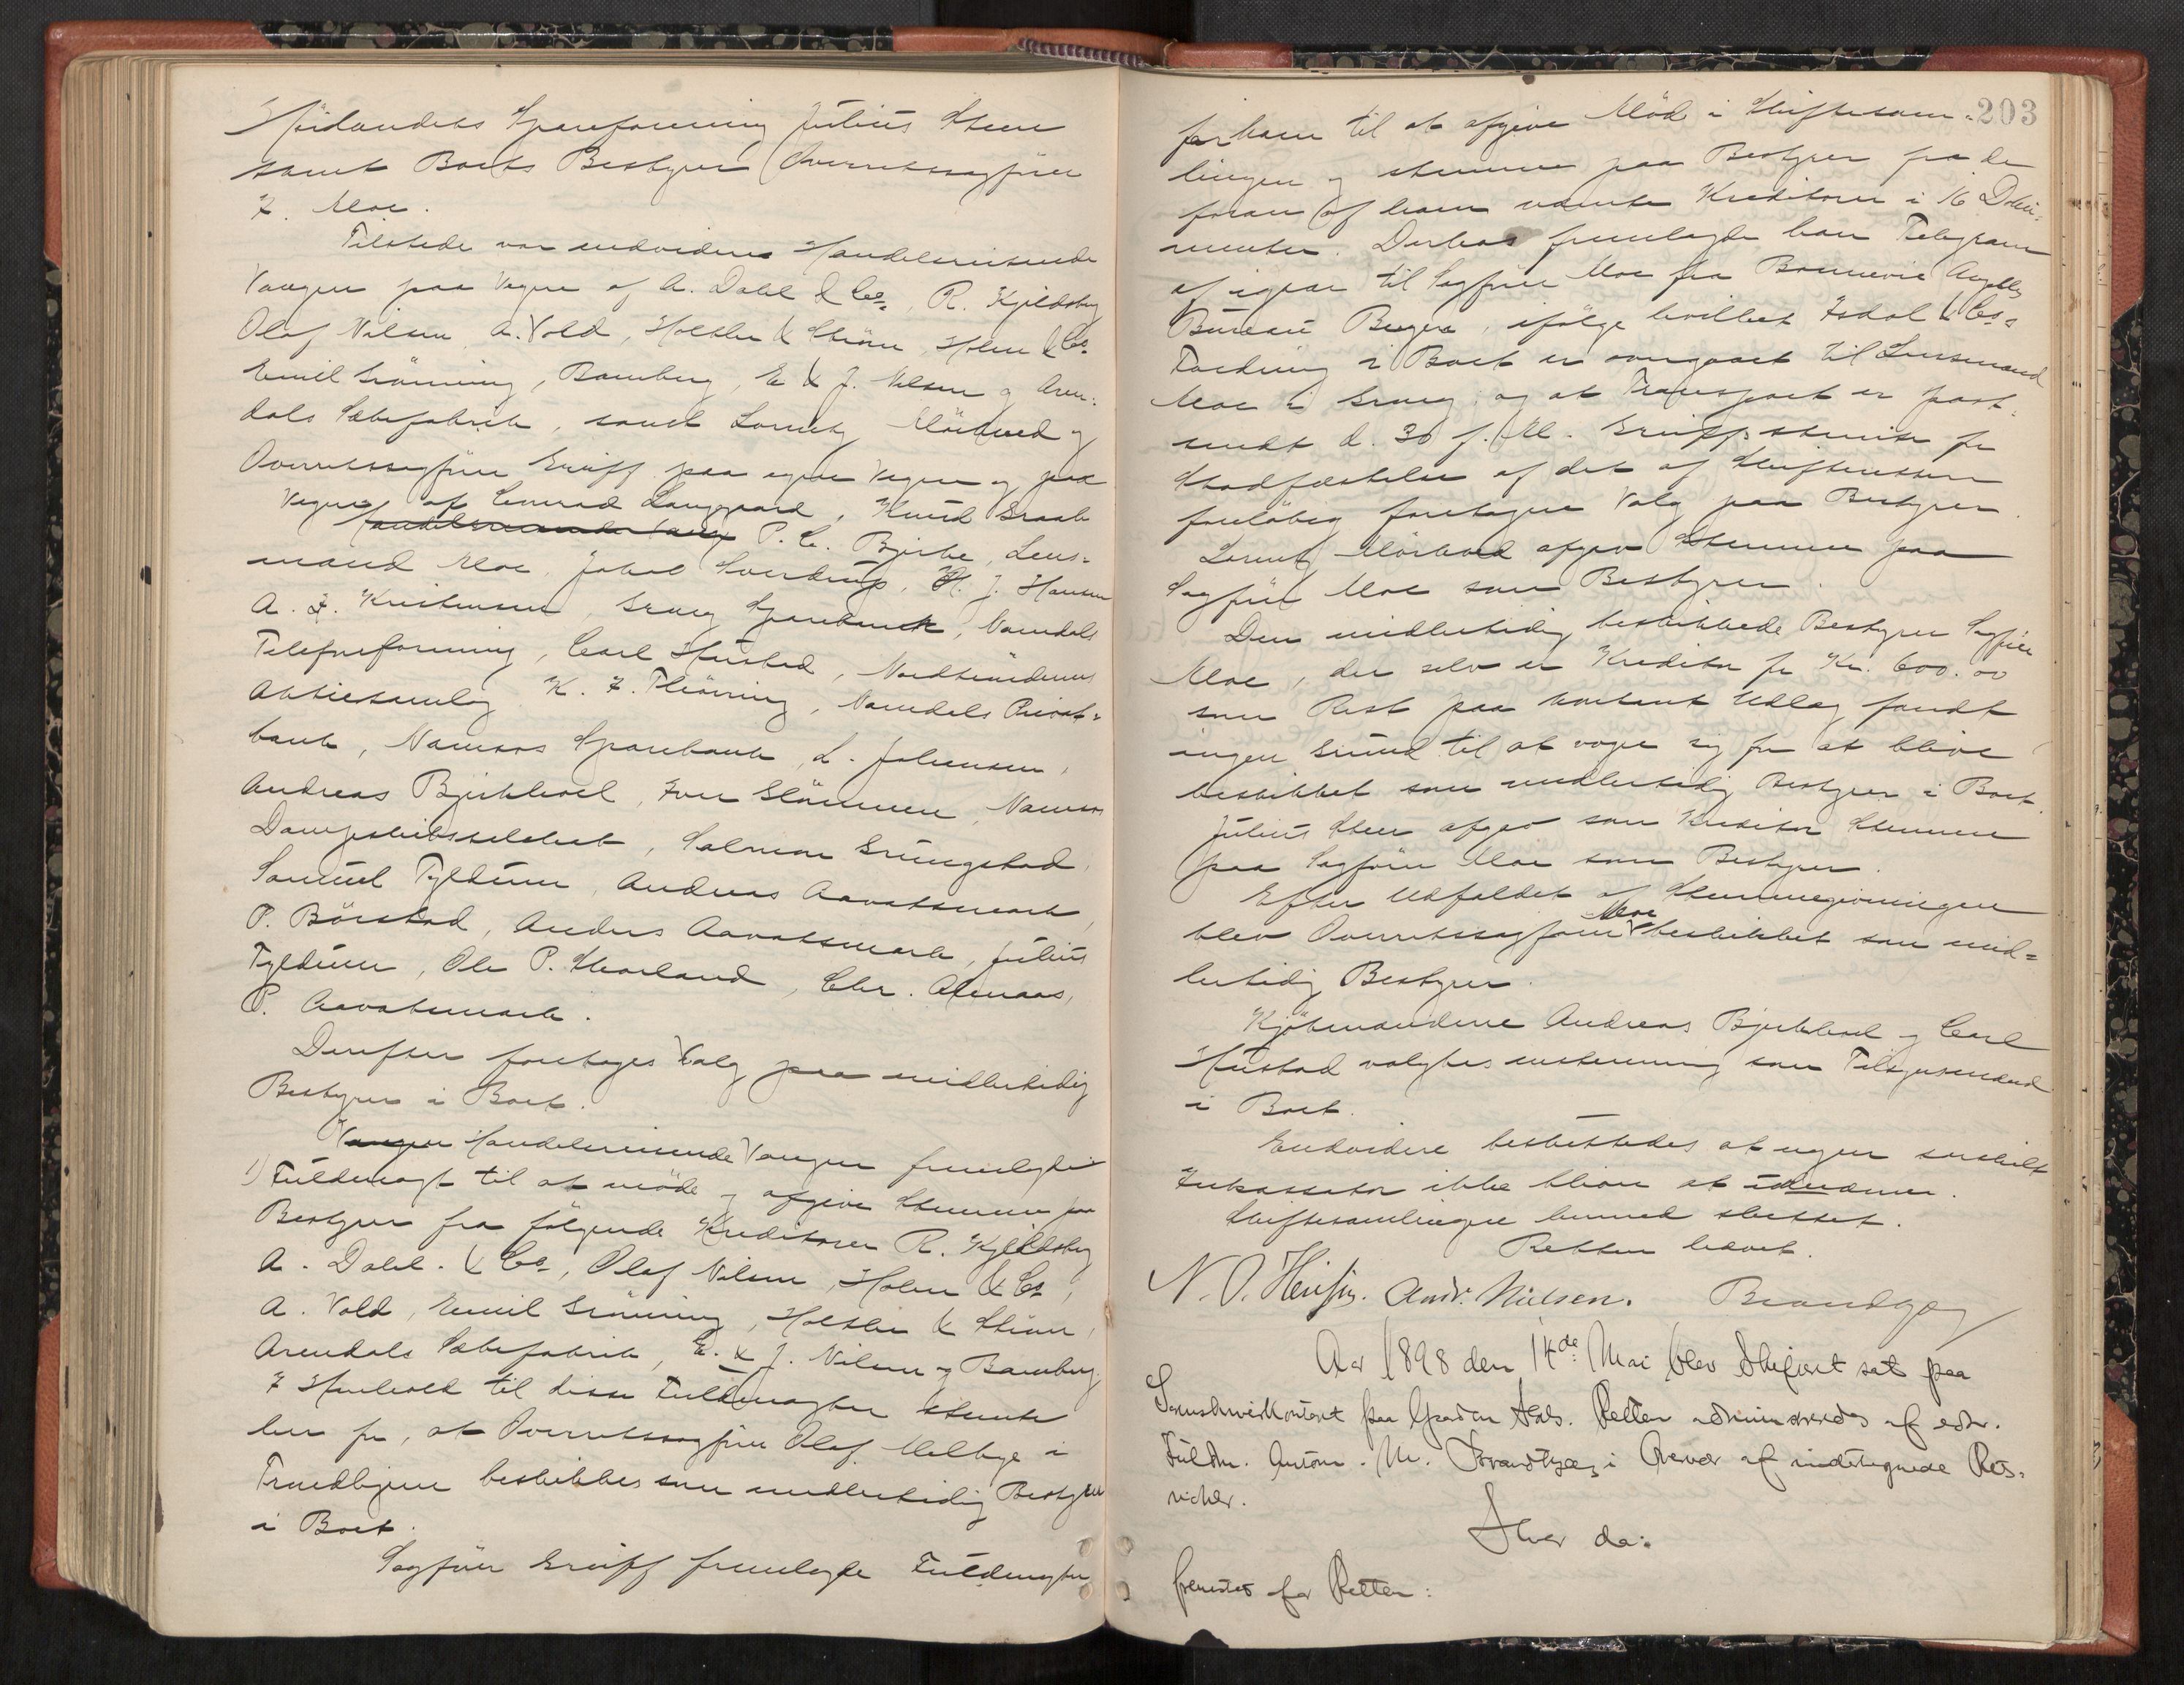 Hölandets Spareforening Julius Steen
samt Boets Bestyrer Overretssagfører
F. Moe.
Tilstede var endvidere Handelsreisende
Vangen paa Vegne af A. Dahl & Co, R. Kjeldsberg
Olaf Nilsen, A. Vold, Holtler & Ström, Holm & Co
Emil Grönning, Bamberg, E & J. Nilsen og Aren-
dals Sæbefabrik, samt Lorentz Mörkved og
Overretssagfører Griff paa egne Vegne og paa
Vegne af Conrad Langgaard, Knud Graah
Handelsreisende Vang P. C. Bjerke, Lens-
mand Moe, Jakob Sverdrup, H. J. Hansen
A. F. Kristensen, Grong Sparebank, Namdals
Telefonforening, Carl Hustad, Nordtröndernes
Aktiesamlag K. F. Thörring, Namdals Privat-
bank, Namsos Sparebank, L. Johansen,
Andreas Bjerkhoel, Iver Glömmen, Namsos
Dampskibsselskab, Salmon Grungstad,
Samuel Tyldum, Andreas Aavatsmark,
P. Börstad, Anders Aavatsmark, Julius
Tyldum, Ole P. Skorland, Chr. Almaas,
P. Aavatsmark.
Derefter foretoges Valg paa midlertidig
Bestyrer i Boet.
Vangen Handelsreisende Vangen fremlagde
1) Fuldmagt til at möde og afgive Stemme paa
Bestyrer fra fölgende Kreditorer R. Kjeldsberg
A. Dahl. & Co, Olaf Nilsen, Holm & Co,
A. Vold, Emil Grönning, Holtler & Ström,
Arendals Sæbefabrik, E. & J. Nilsen og Bamberg.
I Henhold til disse Fuldmagter stemte
han for, at Overretssagfører Olaf Melbye i
Trondhjem beskikkes som midlertidig Bestyrer
i Boet.
Sagfører Griff fremlagde Fuldmagter
203
for ham til at afgive Möd i Skiftesam-
lingen og stemme paa Bestyrer fra de
foran af ham nævnte Kreditorer i 16 Doku-
menter. Derhos fremlagde han Telegram
af igaar til Sagfører Moe fra Bonnevie Angells
Bureau Bergen, ifölge hvilket Isdal & Cos
Fordring i Boet er overgaaet til Lensmand
Moe i Grong, og at Transport er post-
sendt d. 30 f. M. Griff stemte for
Stadfæstelse af det af Skifteretten
forelöbig foretagne Valg paa Bestyrer.
Lorentz Mörkved afgav Stemme paa
Sagfører Moe som Bestyrer.
Den midlertidig beskikkede Bestyrer Sagfører
Moe, der selv er Kreditor for Kr. 600.00
som Rest paa kontant Udlæg fandt
ingen Grund til at vægre sig for at blive
beskikket som midlertidig Bestyrer i Boet.
Julius Steen afgav som Kreditor Stemme
paa Sagfører Moe som Bestyrer.
Efter Udfaldet af Stemmegivningen
blev Overretssagfører Moe beskikket som mid-
lertidig Bestyrer.
Kjöbmændene Andreas Bjerkhoel og Carl
Hustad valgtes enstemmig som Tilsynsmænd
i Boet.
Endvidere besluttedes at nogen særskilt
Inkassator ikke bliver at udnævne.
Skiftesamlingen hermed sluttet.
Retten hævet.
N. O. Andr. Nielsen. Brandtzæg
Aar 1898 den 14de Mai blev Skifteret sat paa
Sorenskriverkontoret paa Gaarden Hals. Retten administreredes af edsv.
Fuldm. Anton. M. Brandtzæg i Overvær af undertegnede Rets-
vidner.
Hvor da:
foretoges for Retten: